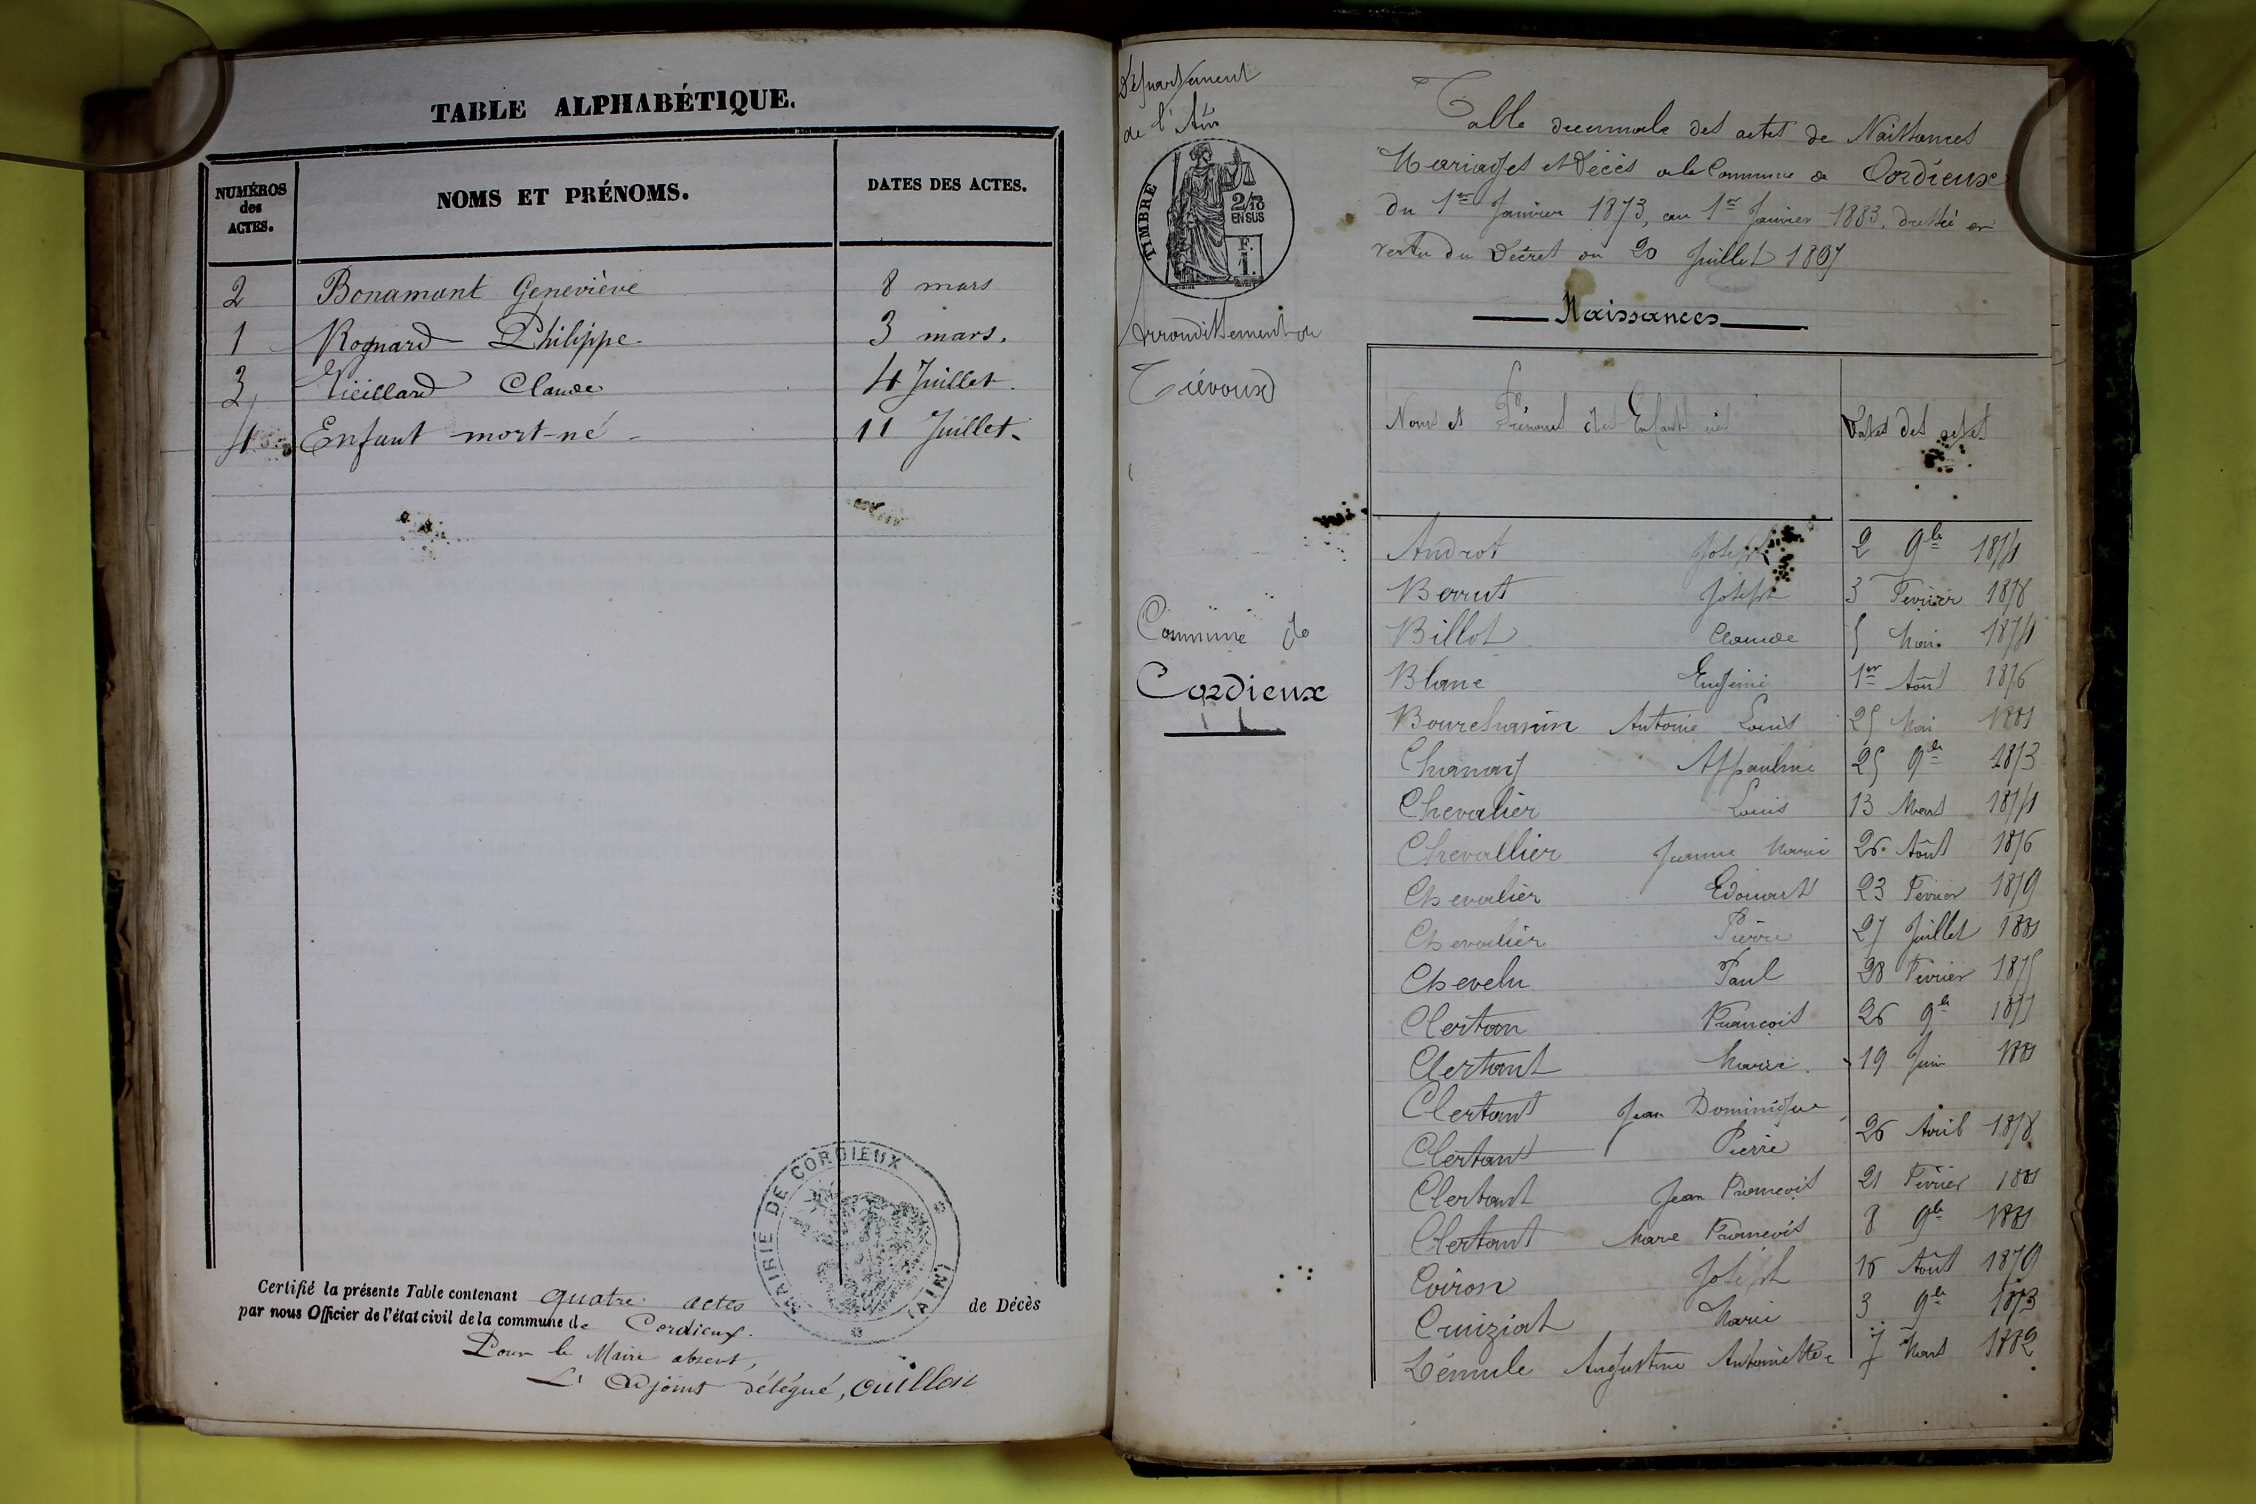 TABLE ALPHABÉTIQUE.
NUMÉROS des ACTES.
NOMS ET PRÉNOMS.
DATES DES ACTES.
2 Bonamant Geneviève 8 mars
1 Rognard Philippe 3 mars.
3 Vieillard Claude 4 Juillet.
4 Enfant mort-né 11 Juillet.
MAIRIE DE CORDIEUX
(AIN)
Certifié la présente Table contenant quatre actes de Décès
par nous Officier de l'état civil de la commune de Cordieux.
Pour le Maire absent,
L'Adjoint délégué, Cuillon
Département
de l'Ain
TIMBRE
2/10
EN SUS
F.
1.
Arrondissement de
Trévoux
Commune de
Cordieux
Table decennale des actes de Naissances
Mariages et Décès de la Commune de Cordieux
du 1er Janvier 1873, au 1er Janvier 1883, dressé en
vertu du Décret du 20 Juillet 1807
Naissances
Noms et Prénoms des Enfants nés Dates des actes
Androt Joseph 2 9bre 1874
Berrut Joseph 3 Fevrier 1878
Billot Claude 5 Mai 1874
Blanc Eugénie 1er Août 1876
Bourchanin Antoine Louis 25 Mai 1881
Chanay Appauline 25 9bre 1873
Chevalier Louis 13 Mars 1874
Chevallier Jeanne Marie 26 Août 1876
Chevalier Edouard 23 Fevrier 1879
Chevalier Pierre 27 Juillet 1881
Chevelu Paul 28 Fevrier 1875
Clertan François 26 9bre 1877
Clertant Marie 19 Juin 1881
Clertant Jean Dominique
Clertant Pierre 26 Avril 1878
Clertant Jean François 21 Février 1881
Clertant Marie François 8 9bre 1881
Coiron Joseph 16 Août 1879
Cruiziat Marie 3 9bre 1873
Démule Augustine Antoinette 7 Mars 1882